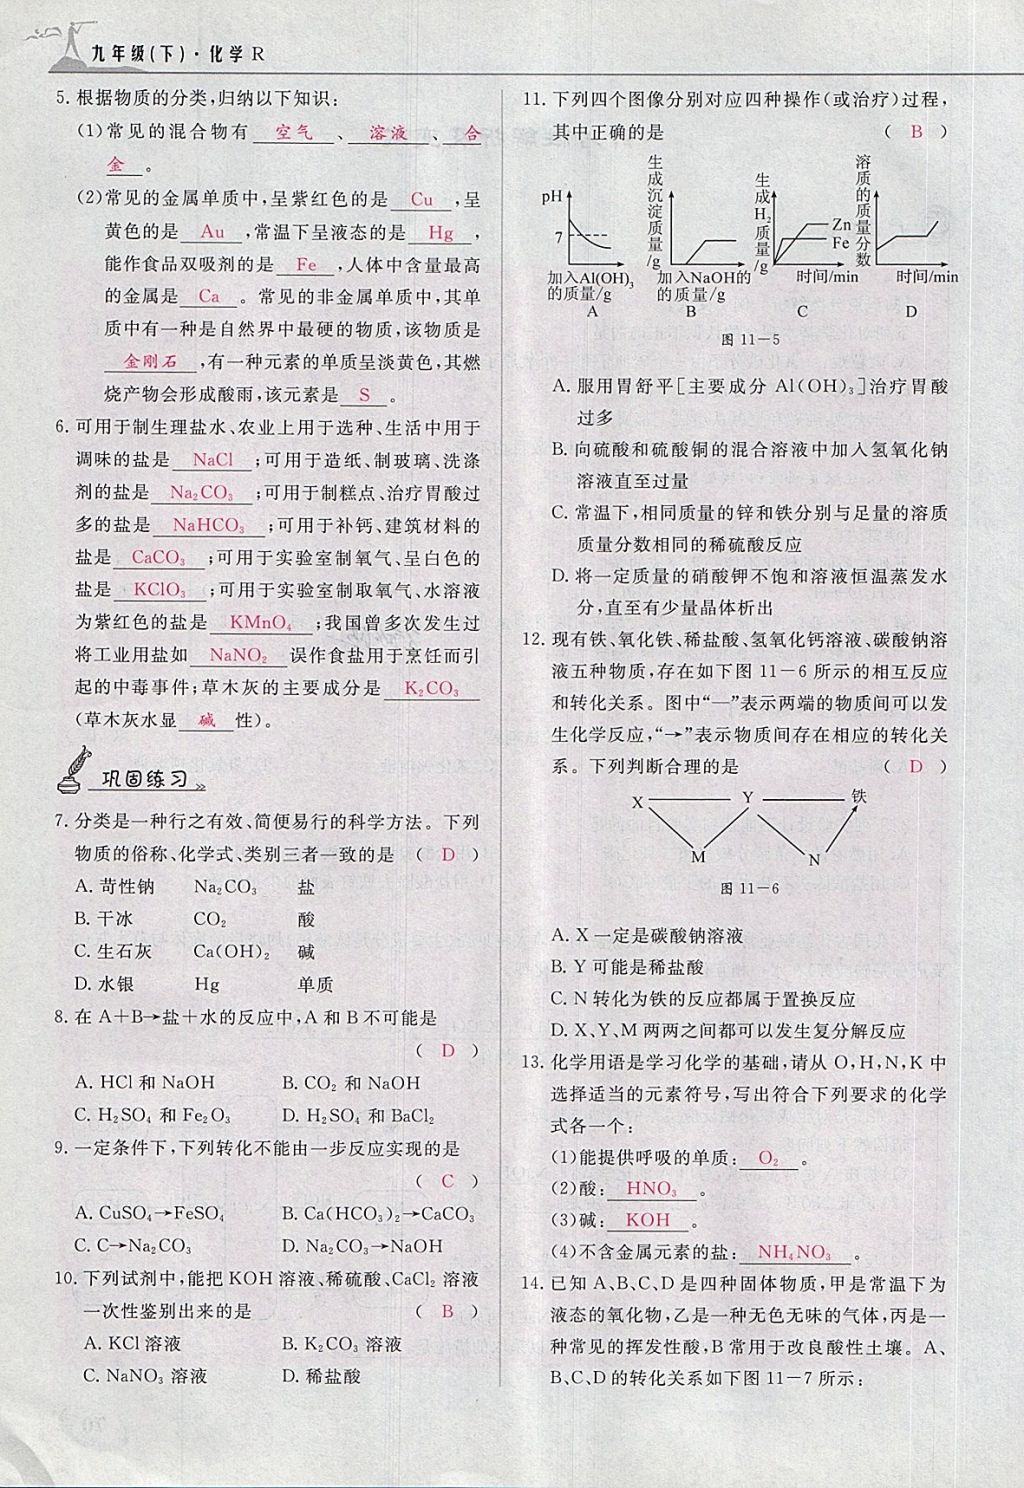 九年级(下)·化学 R
5. 根据物质的分类,归纳以下知识:
(1)常见的混合物有 空气 、 溶液 、 合
金 。
(2)常见的金属单质中,呈紫红色的是 Cu ,呈
黄色的是 Au ,常温下呈液态的是 Hg ,
能作食品双吸剂的是 Fe ,人体中含量最高
的金属是 Ca 。常见的非金属单质中,其单
质中有一种是自然界中最硬的物质,该物质是
金刚石 ,有一种元素的单质呈淡黄色,其燃
烧产物会形成酸雨,该元素是 S 。
6. 可用于制生理盐水、农业上用于选种、生活中用于
调味的盐是 NaCl ;可用于造纸、制玻璃、洗涤
剂的盐是 Na₂CO₃ ;可用于制糕点、治疗胃酸过
多的盐是 NaHCO₃ ;可用于补钙、建筑材料的
盐是 CaCO₃ ;可用于实验室制氧气、呈白色的
盐是 KClO₃ ;可用于实验室制取氧气、水溶液
为紫红色的盐是 KMnO₄ ;我国曾多次发生过
将工业用盐如 NaNO₂ 误作食盐用于烹饪而引
起的中毒事件;草木灰的主要成分是 K₂CO₃
(草木灰水显 碱 性)。
巩固练习
7. 分类是一种行之有效、简便易行的科学方法。下列
物质的俗称、化学式、类别三者一致的是 ( D )
A. 苛性钠 Na₂CO₃ 盐
B. 干冰 CO₂ 酸
C. 生石灰 Ca(OH)₂ 碱
D. 水银 Hg 单质
8. 在 A+B→盐+水的反应中,A 和 B 不可能是
( D )
A. HCl 和 NaOH B. CO₂ 和 NaOH
C. H₂SO₄ 和 Fe₂O₃ D. H₂SO₄ 和 BaCl₂
9. 一定条件下,下列转化不能由一步反应实现的是
( C )
A. CuSO₄→FeSO₄ B. Ca(HCO₃)₂→CaCO₃
C. C→Na₂CO₃ D. Na₂CO₃→NaOH
10. 下列试剂中,能把 KOH 溶液、稀硫酸、CaCl₂ 溶液
一次性鉴别出来的是 ( B )
A. KCl 溶液 B. K₂CO₃ 溶液
C. NaNO₃ 溶液 D. 稀盐酸
11. 下列四个图像分别对应四种操作(或治疗)过程,
其中正确的是 ( B )
pH
7
加入Al(OH)₃
的质量/g
A
生成沉淀质量/g
加入NaOH的
的质量/g
B
生成H₂质量/g
Zn
Fe
时间/min
C
溶质的质量分数
时间/min
D
图 11-5
A. 服用胃舒平[主要成分 Al(OH)₃]治疗胃酸
过多
B. 向硫酸和硫酸铜的混合溶液中加入氢氧化钠
溶液直至过量
C. 常温下,相同质量的锌和铁分别与足量的溶质
质量分数相同的稀硫酸反应
D. 将一定质量的硝酸钾不饱和溶液恒温蒸发水
分,直至有少量晶体析出
12. 现有铁、氧化铁、稀盐酸、氢氧化钙溶液、碳酸钠溶
液五种物质,存在如下图 11-6 所示的相互反应
和转化关系。图中“—”表示两端的物质间可以发
生化学反应,“→”表示物质间存在相应的转化关
系。下列判断合理的是 ( D )
X Y 铁
M N
图 11-6
A. X 一定是碳酸钠溶液
B. Y 可能是稀盐酸
C. N 转化为铁的反应都属于置换反应
D. X、Y、M 两两之间都可以发生复分解反应
13. 化学用语是学习化学的基础,请从 O,H,N,K 中
选择适当的元素符号,写出符合下列要求的化学
式各一个:
(1)能提供呼吸的单质: O₂ 。
(2)酸: HNO₃ 。
(3)碱: KOH 。
(4)不含金属元素的盐: NH₄NO₃ 。
14. 已知 A、B、C、D 是四种固体物质,甲是常温下为
液态的氧化物,乙是一种无色无味的气体,丙是一
种常见的挥发性酸,B 常用于改良酸性土壤。A、
B、C、D 的转化关系如下图 11-7 所示: